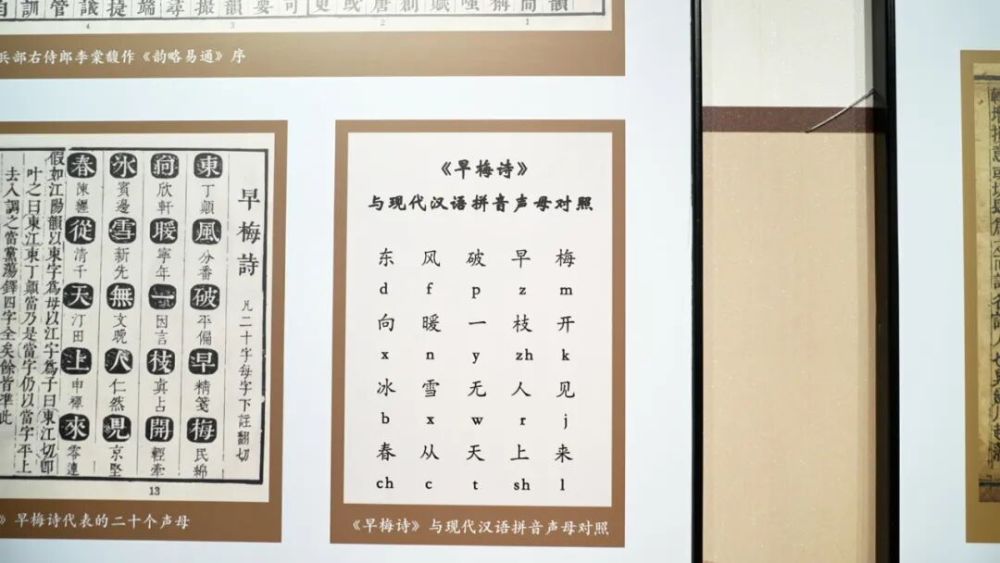 兵部右侍郎李棠馥作《韵略易通》序
早梅詩 凡二十字每字下註翻切
東 丁顛 風 分番 破 平偏 早 精箋 梅 民綿
向 欣軒 暖 寧年 一 因言 枝 真占 開 輕牽
冰 賓邊 雪 新先 無 文晚 人 仁然 見 京堅
春 陳 從 清千 天 汀田 上 申禪 來 零連
假如江陽韻以東字為母以江字為子曰東江切即
叶之曰東江東丁顛當乃是當字仍以當字平上
去入調之當黨蕩鐸四字全矣餘皆準此
13
》早梅诗代表的二十个声母
《早梅诗》
与现代汉语拼音声母对照
东 风 破 早 梅
d f p z m
向 暖 一 枝 开
x n y zh k
冰 雪 无 人 见
b x w r j
春 从 天 上 来
ch c t sh l
《早梅诗》与现代汉语拼音声母对照